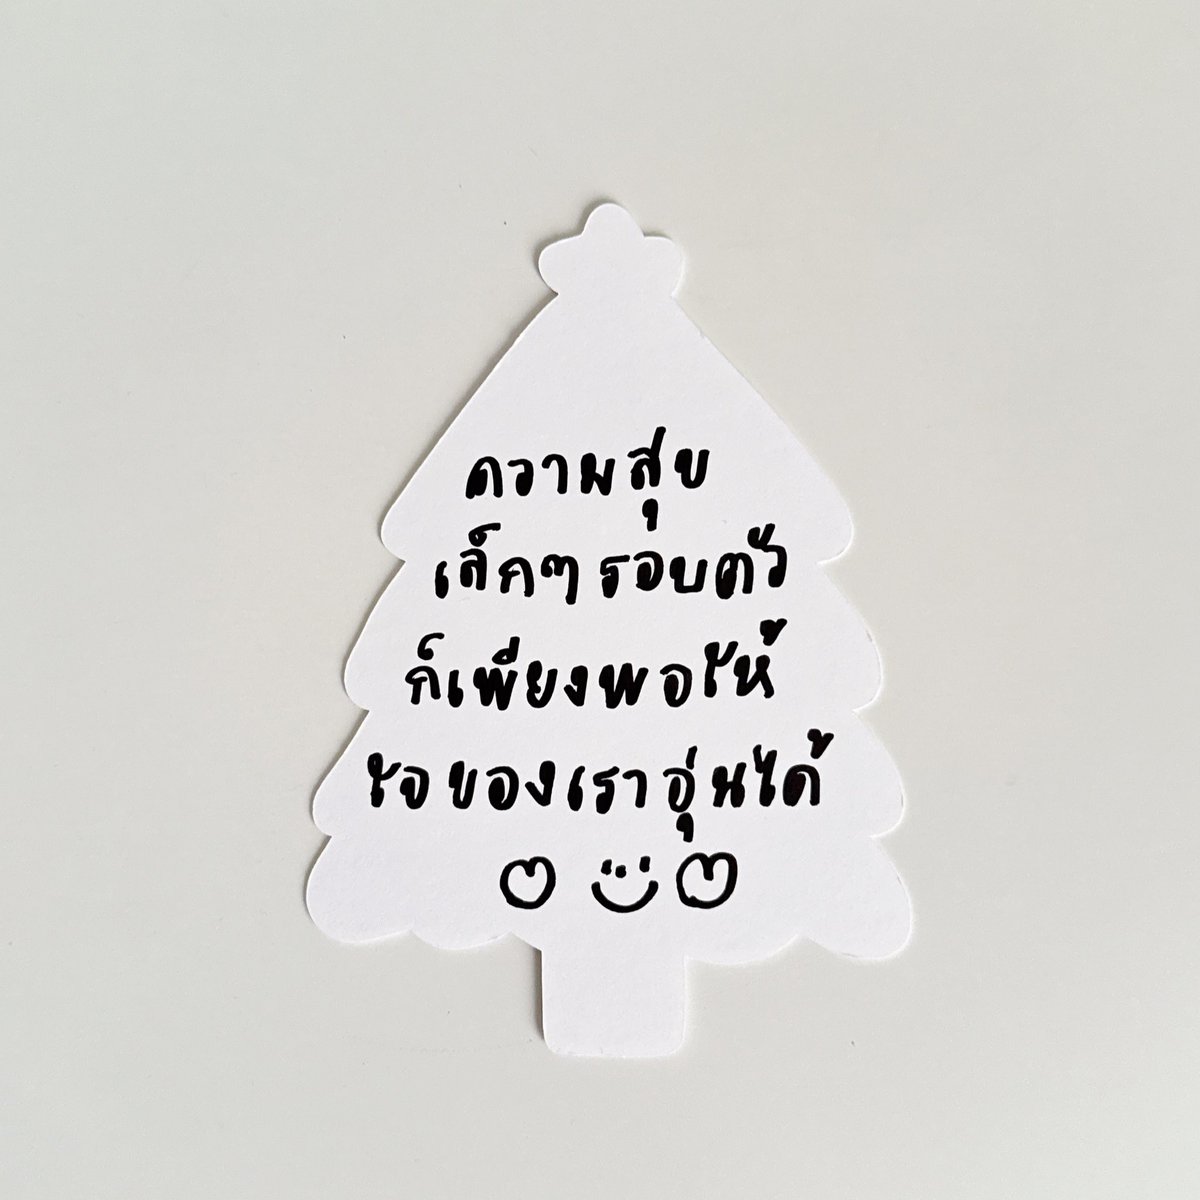 ความสุข
เล็กๆ รอบตัว
ก็เพียงพอให้
ใจของเราอุ่นได้